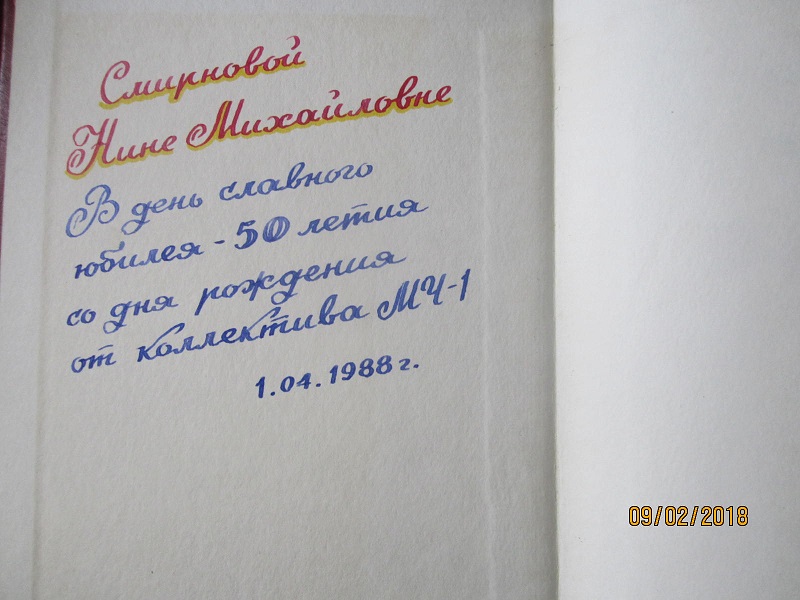 Смирновой
Нине Михайловне
В день славного
юбилея - 50 летия
со дня рождения
от коллектива МЧ-1
1.04.1988 г.
09/02/2018